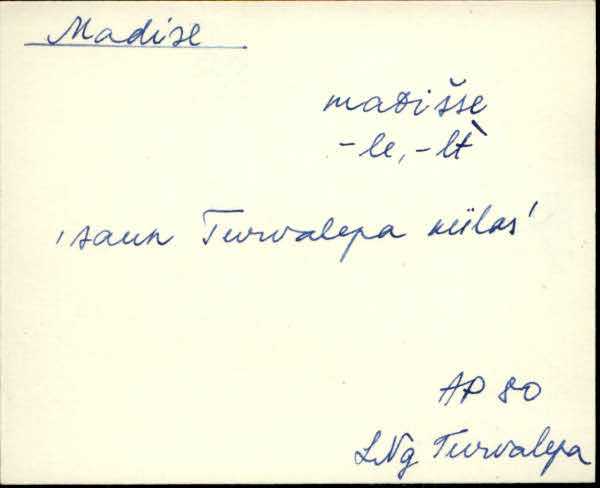 Madise
maᴅišše
-le, -lt̀
'saun Turvalepa külas'
AP 80
LNg Turvalepa